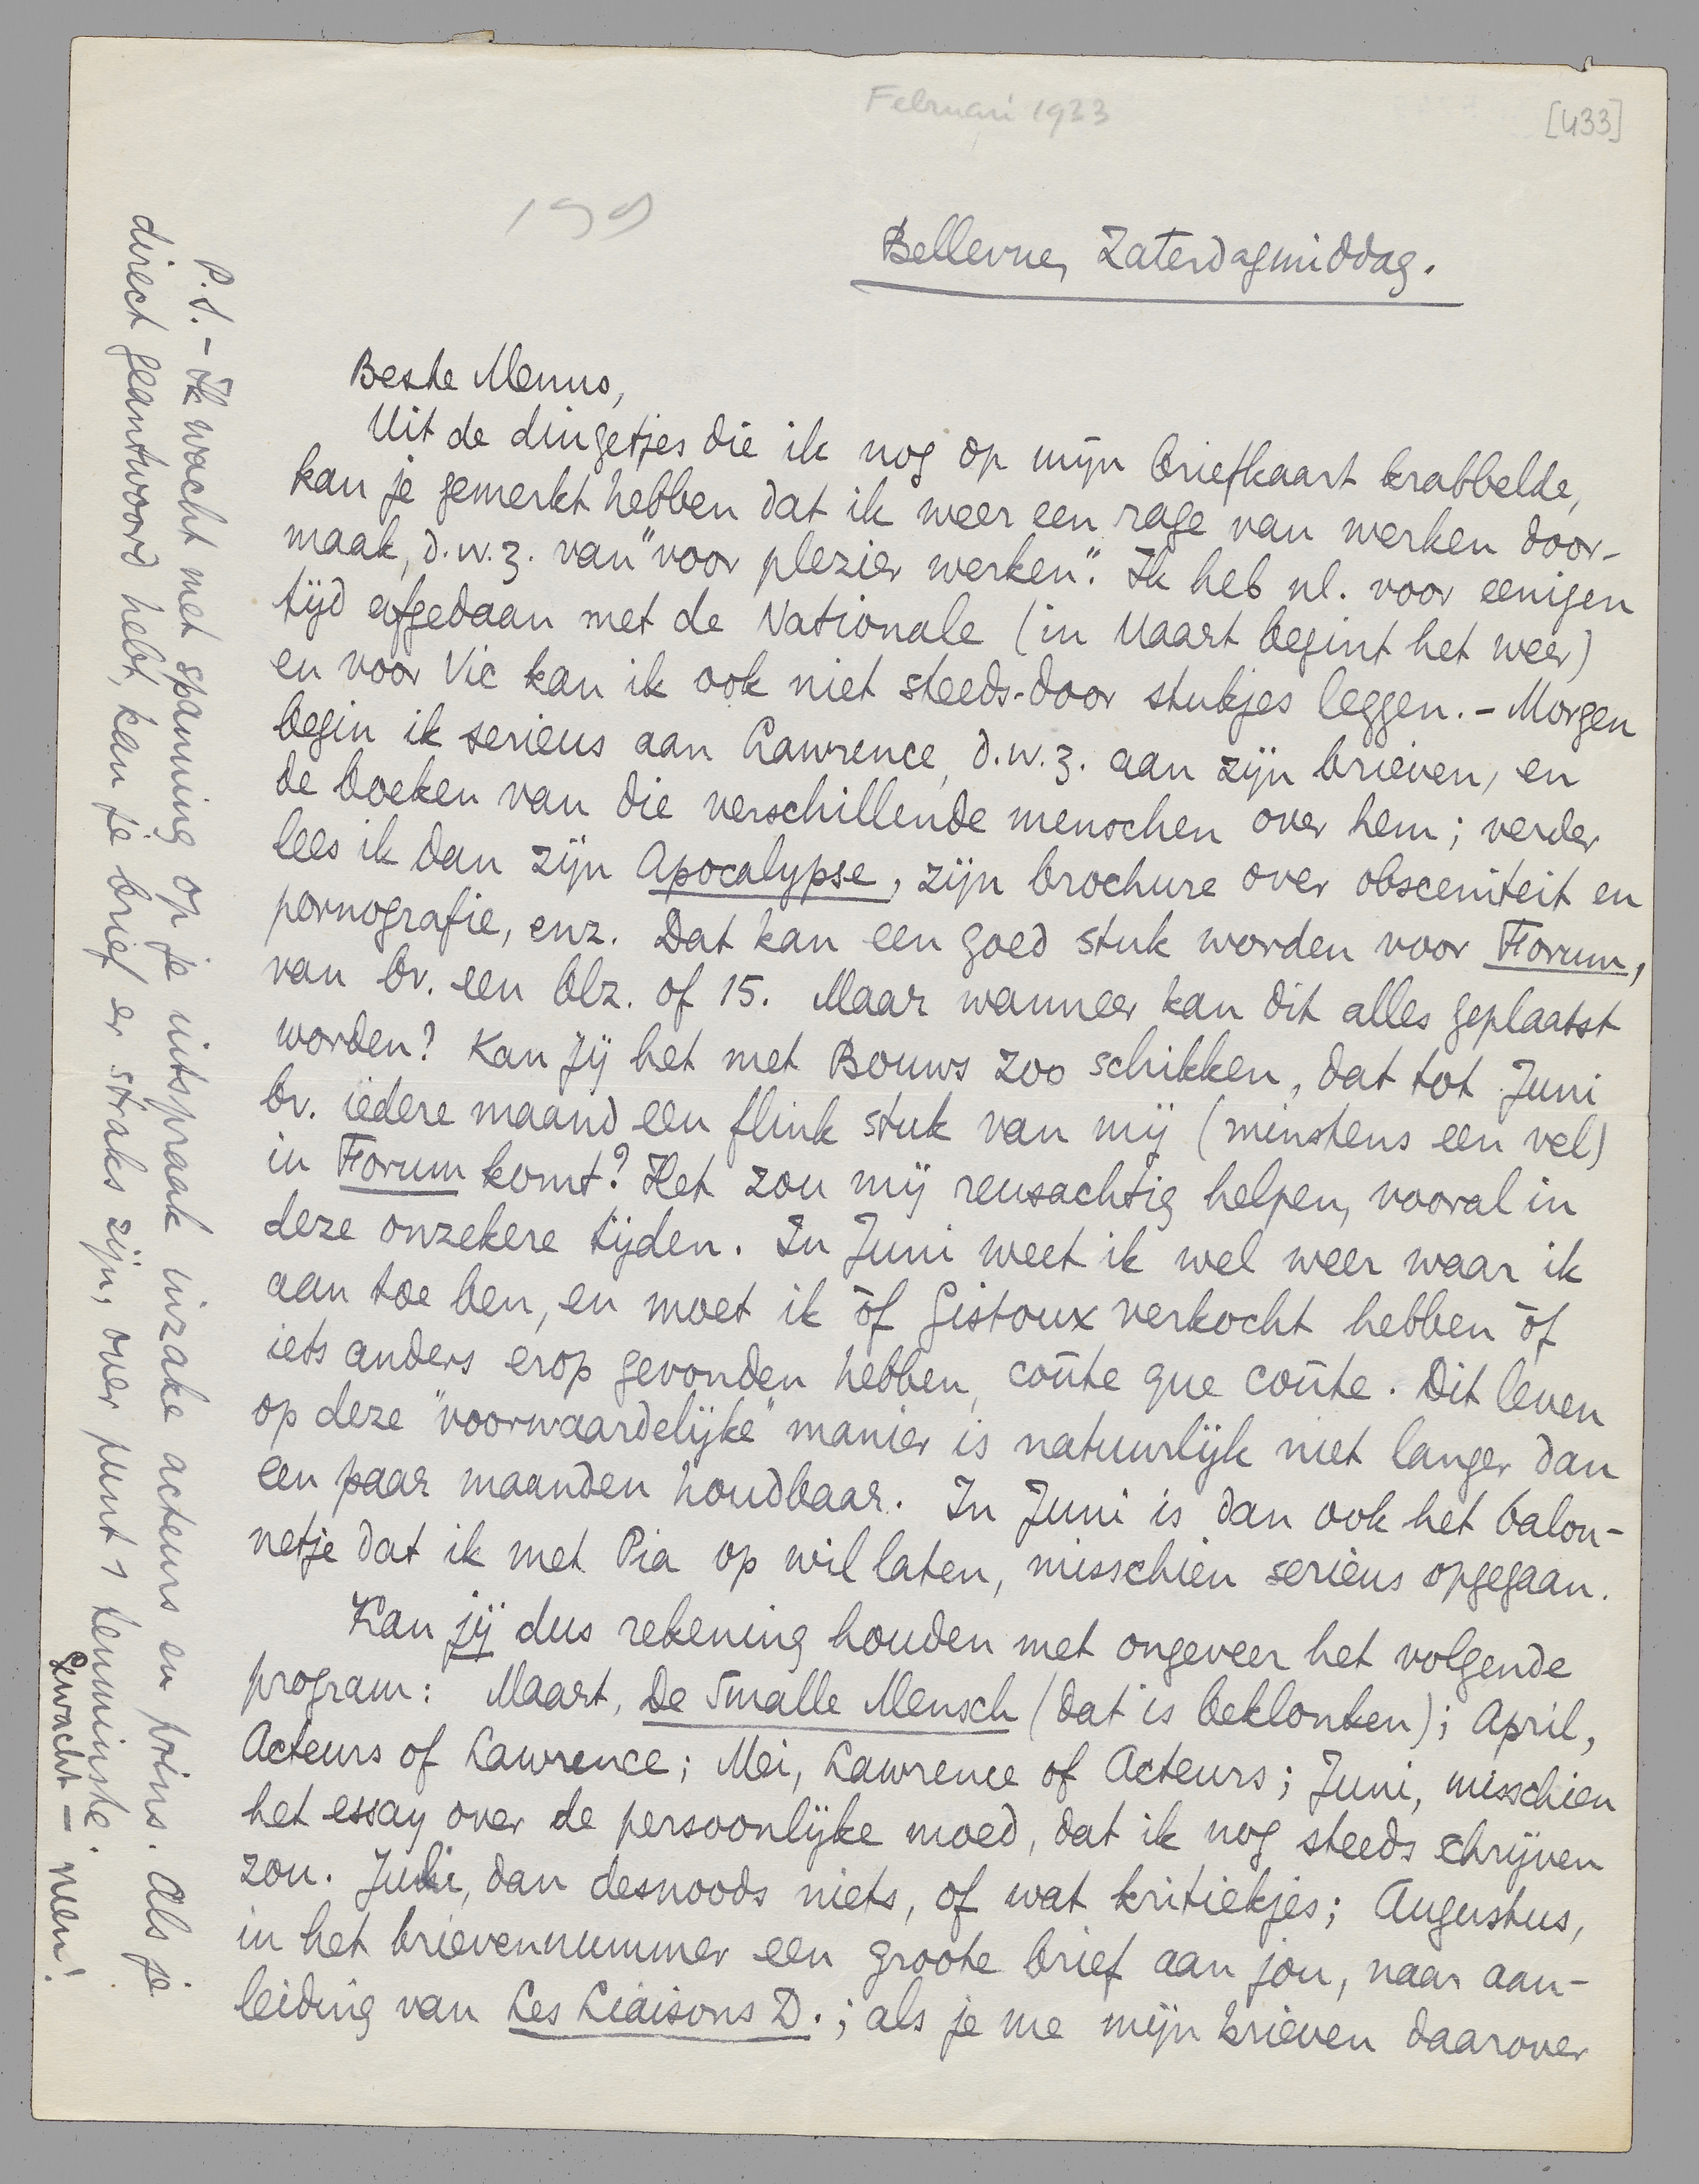 Februari 1933
[433]
199
Bellevue, Zaterdagmiddag.
Beste Menno,
Uit de dingetjes die ik nog op mijn briefkaart krabbelde,
kan je gemerkt hebben dat ik weer een rage van werken door-
maak, d.w.z. van "voor plezier werken". Ik heb nl. voor eenigen
tijd afgedaan met de Nationale (in Maart begint het weer)
en voor Vic kan ik ook niet steeds-door stukjes leggen. - Morgen
begin ik serieus aan Lawrence, d.w.z. aan zijn brieven, en
de boeken van die verschillende menschen over hem; verder
lees ik dan zijn Apocalypse, zijn brochure over obsceniteit en
pornografie, enz. Dat kan een goed stuk worden voor Forum,
van bv. een blz. of 15. Maar wanneer kan dit alles geplaatst
worden? Kan jij het met Bouws zoo schikken, dat tot Juni
bv. iedere maand een flink stuk van mij (minstens een vel)
in Forum komt? Het zou mij reusachtig helpen, vooral in
deze onzekere tijden. In Juni weet ik wel weer waar ik
aan toe ben, en moet ik òf Gistoux verkocht hebben òf
iets anders erop gevonden hebben, coûte que coûte. Dit leven
op deze "voorwaardelijke" manier is natuurlijk niet langer dan
een paar maanden houdbaar. In Juni is dan ook het balon-
netje dat ik met Pia op wil laten, misschien serieus opgegaan.
Kan jij dus rekening houden met ongeveer het volgende
program: Maart, De Smalle Mensch (dat is beklonken); April,
Acteurs of Lawrence; Mei, Lawrence of Acteurs; Juni, misschien
het essay over de persoonlijke moed, dat ik nog steeds schrijven
zou. Juli, dan desnoods niets, of wat kritiekjes; Augustus,
in het brievennummer een groote brief aan jou, naar aan-
leiding van Les Liaisons D.; als je me mijn brieven daarover
P.S. - Ik wacht met spanning op je uitspraak inzake acteurs en prins. Als je
direct geantwoord hebt, kan je brief er straks zijn, over punt 1 tenminste.
Gewacht - neen!